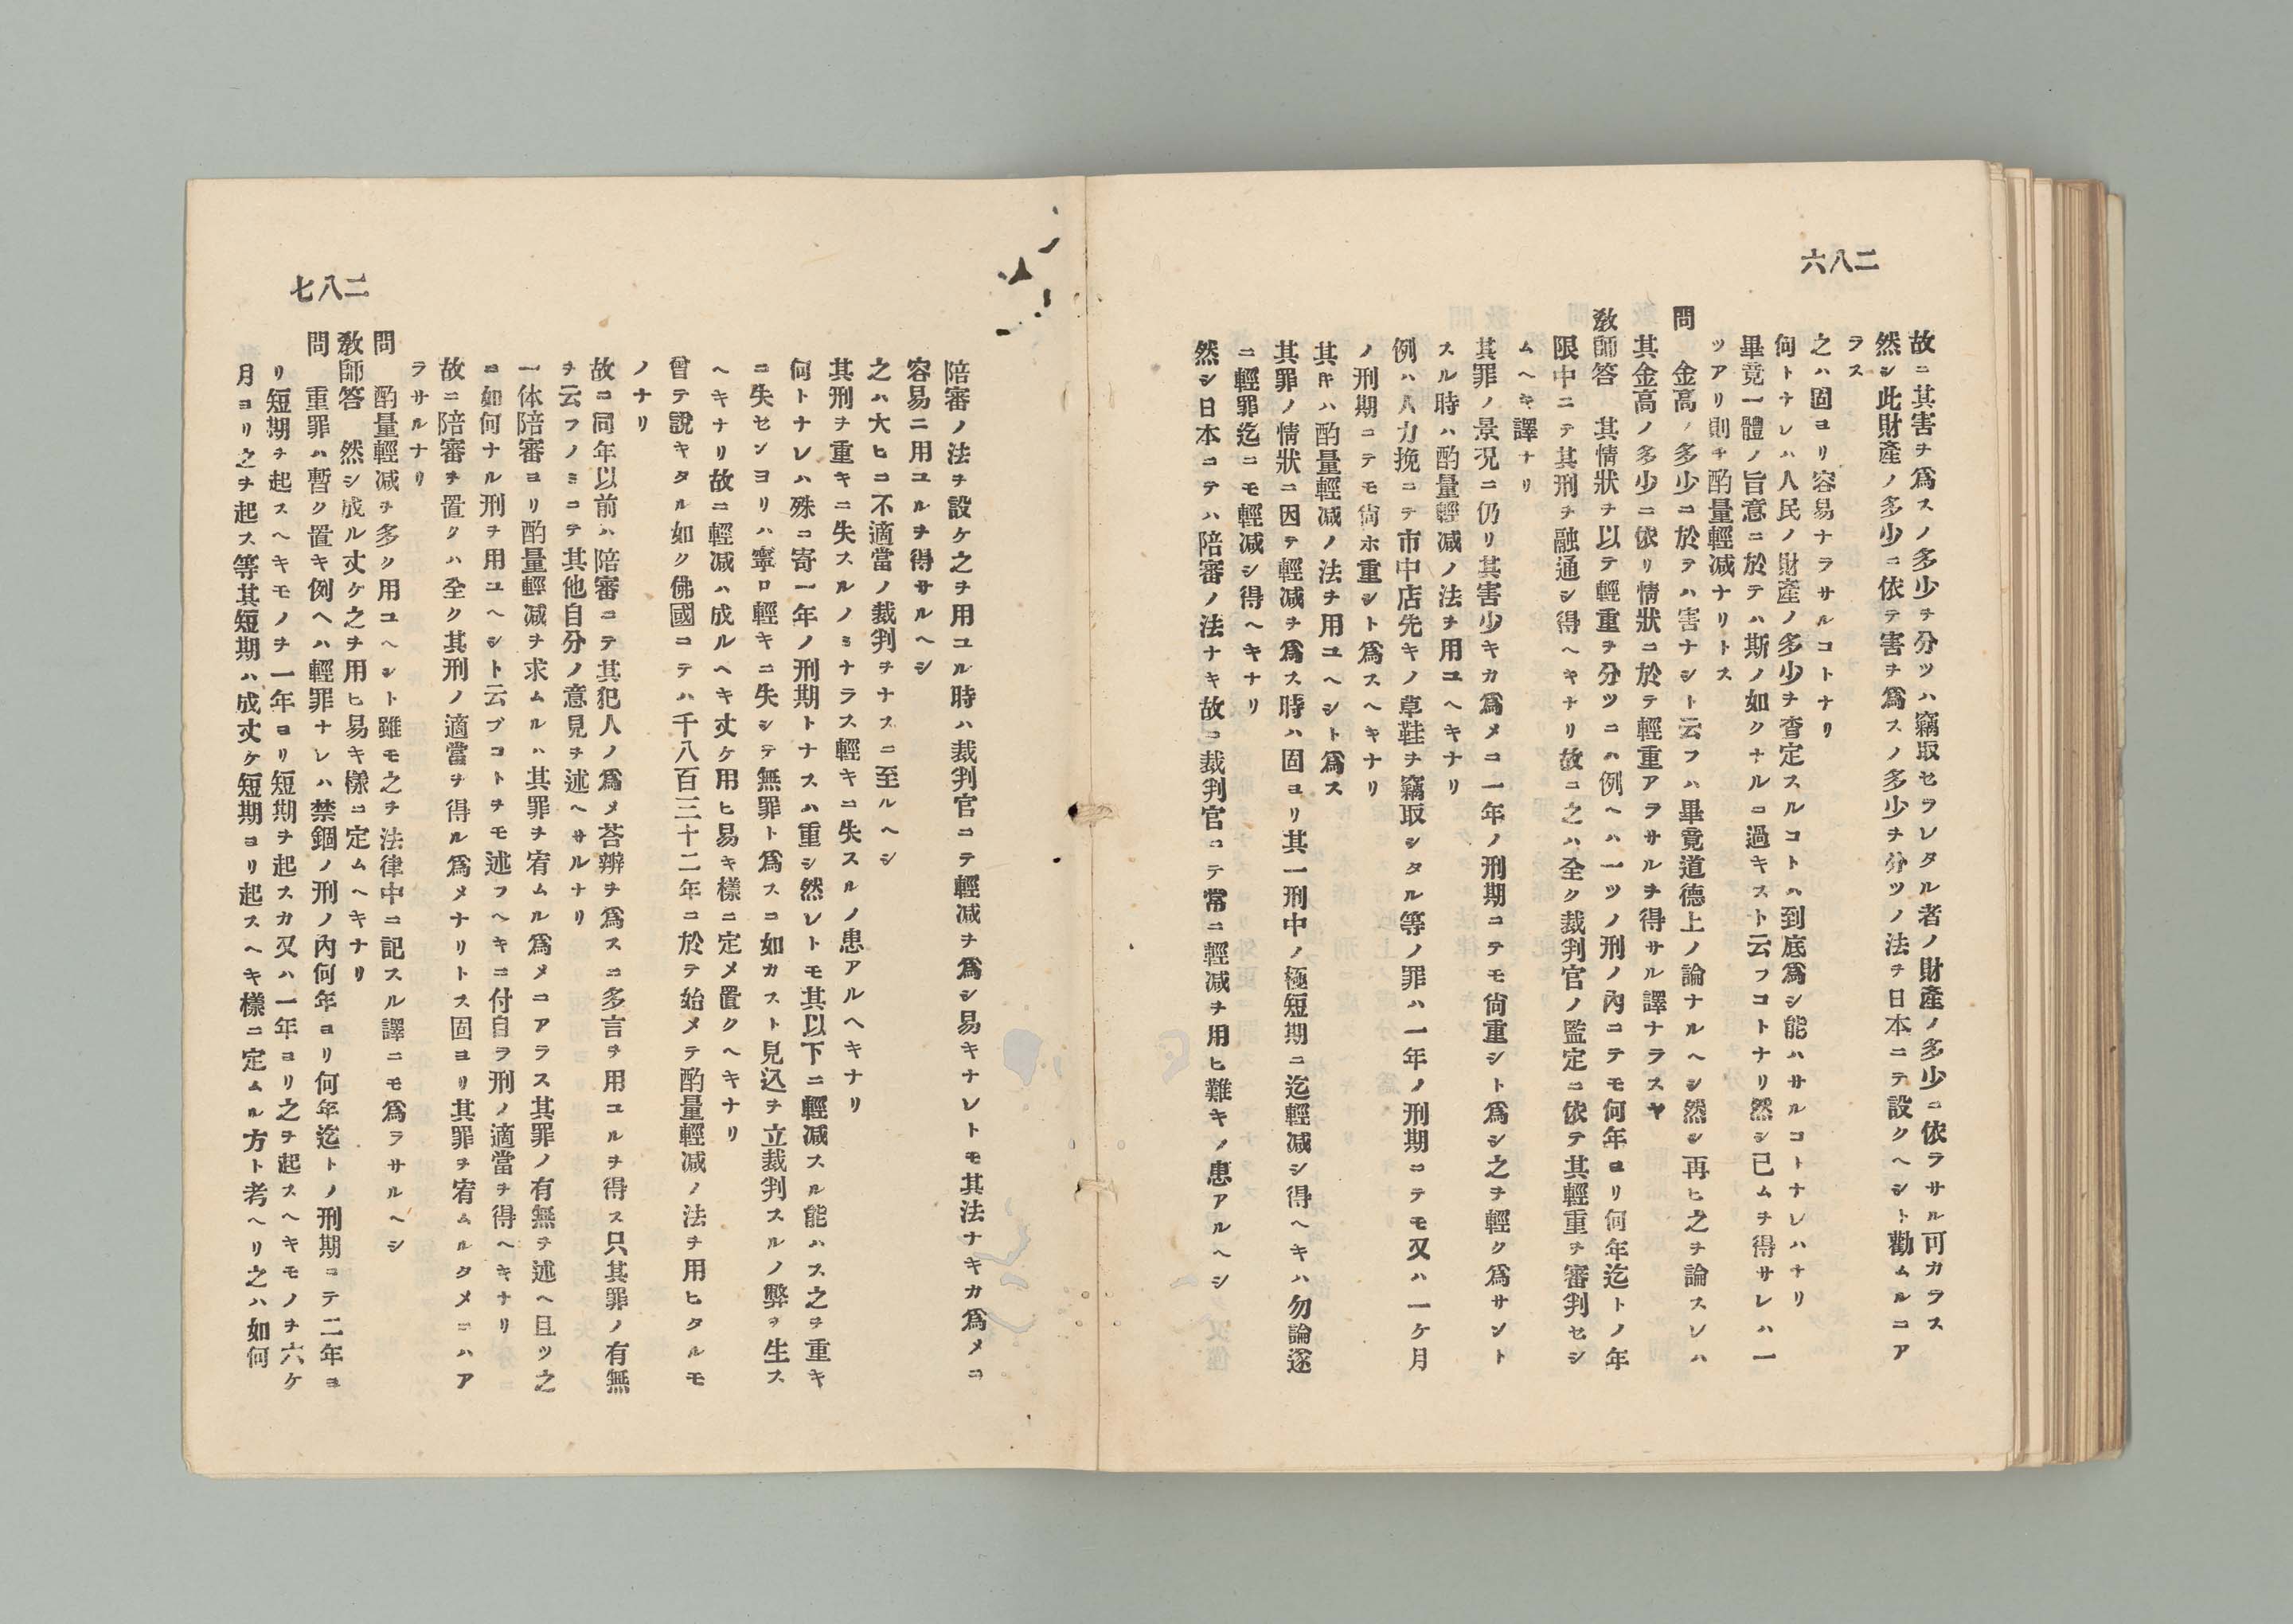 二八六
故ニ其害ヲ爲スノ多少ヲ分ツハ竊取セラレタル者ノ財產ノ多少ニ依ラサル可カラス
然シ此財產ノ多少ニ依テ害ヲ爲スノ多少ヲ分ツノ法ヲ日本ニテ設クヘシト勸ムルニア
ラス
之ハ固ヨリ容易ナラサルコトナリ
何トナレハ人民ノ財產ノ多少ヲ査定スルコトハ到底爲シ能ハサルコトナレハナリ
畢竟一體ノ旨意ニ於テハ斯ノ如クナルニ過キスト云フコトナリ然シ已ムヲ得サレハ一
ツアリ則チ酌量輕减ナリトス
問　金高ノ多少ニ於テハ害ナシト云フハ畢竟道德上ノ論ナルヘシ然シ再ヒ之ヲ論スレハ
其金高ノ多少ニ依リ情狀ニ於テ輕重アラサルヲ得サル譯ナラスヤ
敎師答　其情狀ヲ以テ輕重ヲ分ツニハ例ヘハ一ツノ刑ノ內ニテモ何年ヨリ何年迄トノ年
限中ニテ其刑ヲ融通シ得ヘキナリ故ニ之ハ全ク裁判官ノ監定ニ依テ其輕重ヲ審判セシ
ムヘキ譯ナリ
其罪ノ景況ニ仍リ其害少キカ爲メニ一年ノ刑期ニテモ尙重シト爲シ之ヲ輕ク爲サント
スル時ハ酌量輕减ノ法ヲ用ユヘキナリ
例ハ人力挽ニテ市中店先キノ草鞋ヲ竊取シタル等ノ罪ハ一年ノ刑期ニテモ又ハ一ケ月
ノ刑期ニテモ尙ホ重シト爲スヘキナリ
其トキハ酌量輕减ノ法ヲ用ユヘシト爲ス
其罪ノ情狀ニ因テ輕减ヲ爲ス時ハ固ヨリ其一刑中ノ極短期ニ迄輕减シ得ヘキハ勿論遂
ニ輕罪迄ニモ輕减シ得ヘキナリ
然シ日本ニテハ陪審ノ法ナキ故ニ裁判官ニテ常ニ輕减ヲ用ヒ難キノ患アルヘシ
二八七
陪審ノ法ヲ設ケ之ヲ用ユル時ハ裁判官ニテ輕减ヲ爲シ易キナレトモ其法ナキカ爲メニ
容易ニ用ユルヲ得サルヘシ
之ハ大ヒニ不適當ノ裁判ヲナスニ至ルヘシ
其刑ヲ重キニ失スルノミナラス輕キニ失スルノ患アルヘキナリ
何トナレハ殊ニ寄一年ノ刑期トナスハ重シ然レトモ其以下ニ輕减スル能ハス之ヲ重キ
ニ失センヨリハ寧ロ輕キニ失シテ無罪ト爲スニ如カスト見込ヲ立裁判スルノ弊ヲ生ス
ヘキナリ故ニ輕减ハ成ルヘキ丈ケ用ヒ易キ樣ニ定メ置クヘキナリ
曾テ說キタル如ク佛國ニテハ千八百三十二年ニ於テ始メテ酌量輕减ノ法ヲ用ヒタルモ
ノナリ
故ニ同年以前ハ陪審ニテ其犯人ノ爲メ荅辨ヲ爲スニ多言ヲ用ユルヲ得ス只其罪ノ有無
ヲ云フノミニテ其他自分ノ意見ヲ述ヘサルナリ
一体陪審ヨリ酌量輕减ヲ求ムルハ其罪ヲ宥ムル爲メニアラス其罪ノ有無ヲ述ヘ且ツ之
ニ如何ナル刑ヲ用ユヘシト云フコトヲモ述フヘキニ付自ラ刑ノ適當ヲ得ヘキナリ
故ニ陪審ヲ置クハ全ク其刑ノ適當ヲ得ル爲メナリトス固ヨリ其罪ヲ宥ムルタメニハア
ラサルナリ
問　酌量輕减ヲ多ク用ユヘシト雖モ之ヲ法律中ニ記スル譯ニモ爲ラサルヘシ
敎師答　然シ成ル丈ケ之ヲ用ヒ易キ樣ニ定ムヘキナリ
問　重罪ハ暫ク置キ例ヘハ輕罪ナレハ禁錮ノ刑ノ內何年ヨリ何年迄トノ刑期ニテ二年ヨ
リ短期ヲ起スヘキモノヲ一年ヨリ短期ヲ起スカ又ハ一年ヨリ之ヲ起スヘキモノヲ六ケ
月ヨリ之ヲ起ス等其短期ハ成丈ケ短期ヨリ起スヘキ樣ニ定ムル方ト考ヘリ之ハ如何